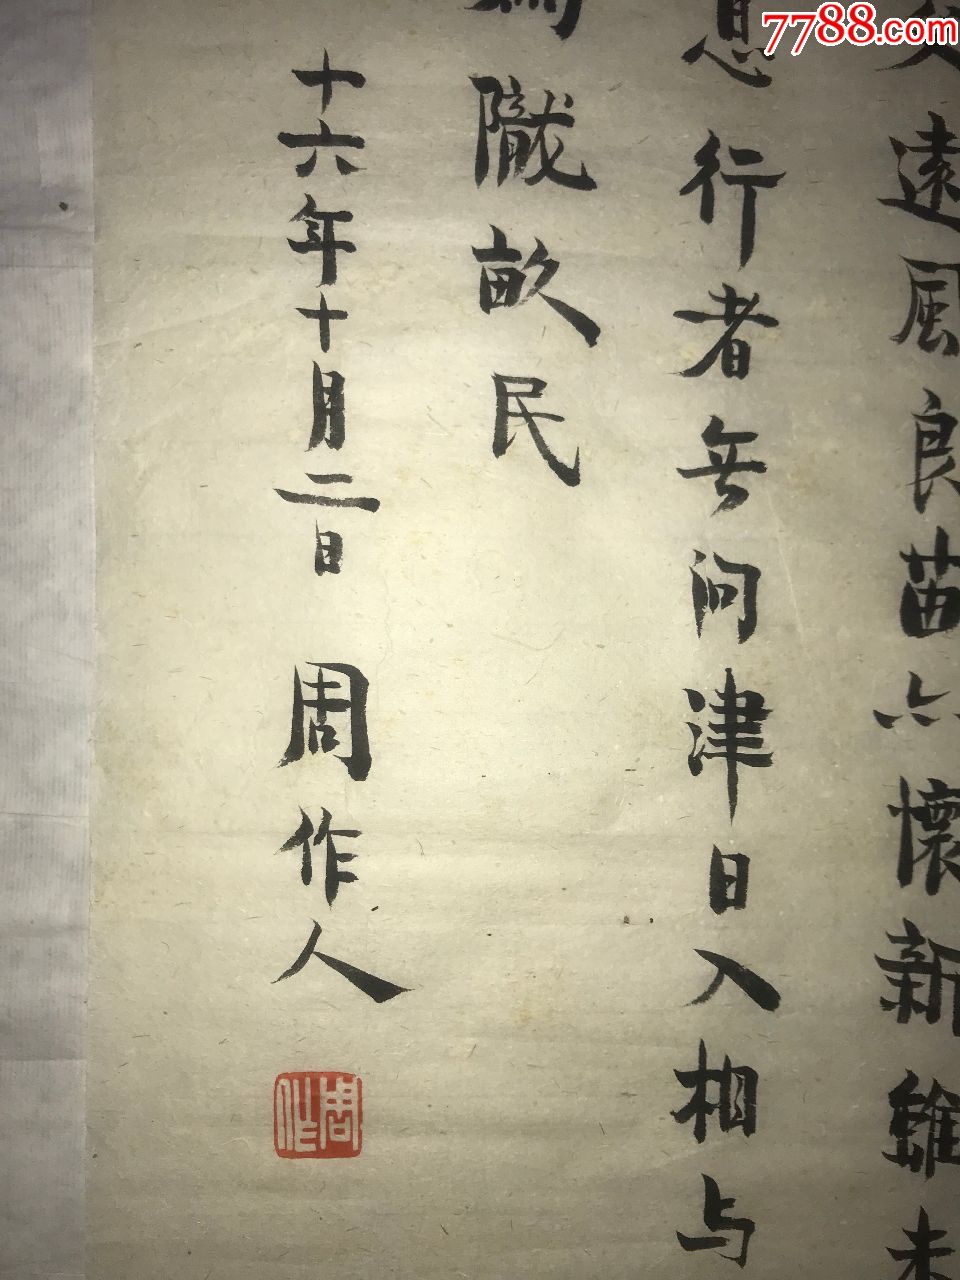 7788.com
遠風良苗亦懷新雖未
息行者無问津日入相与
隴畝民
十六年十月二日 周作人
周作人